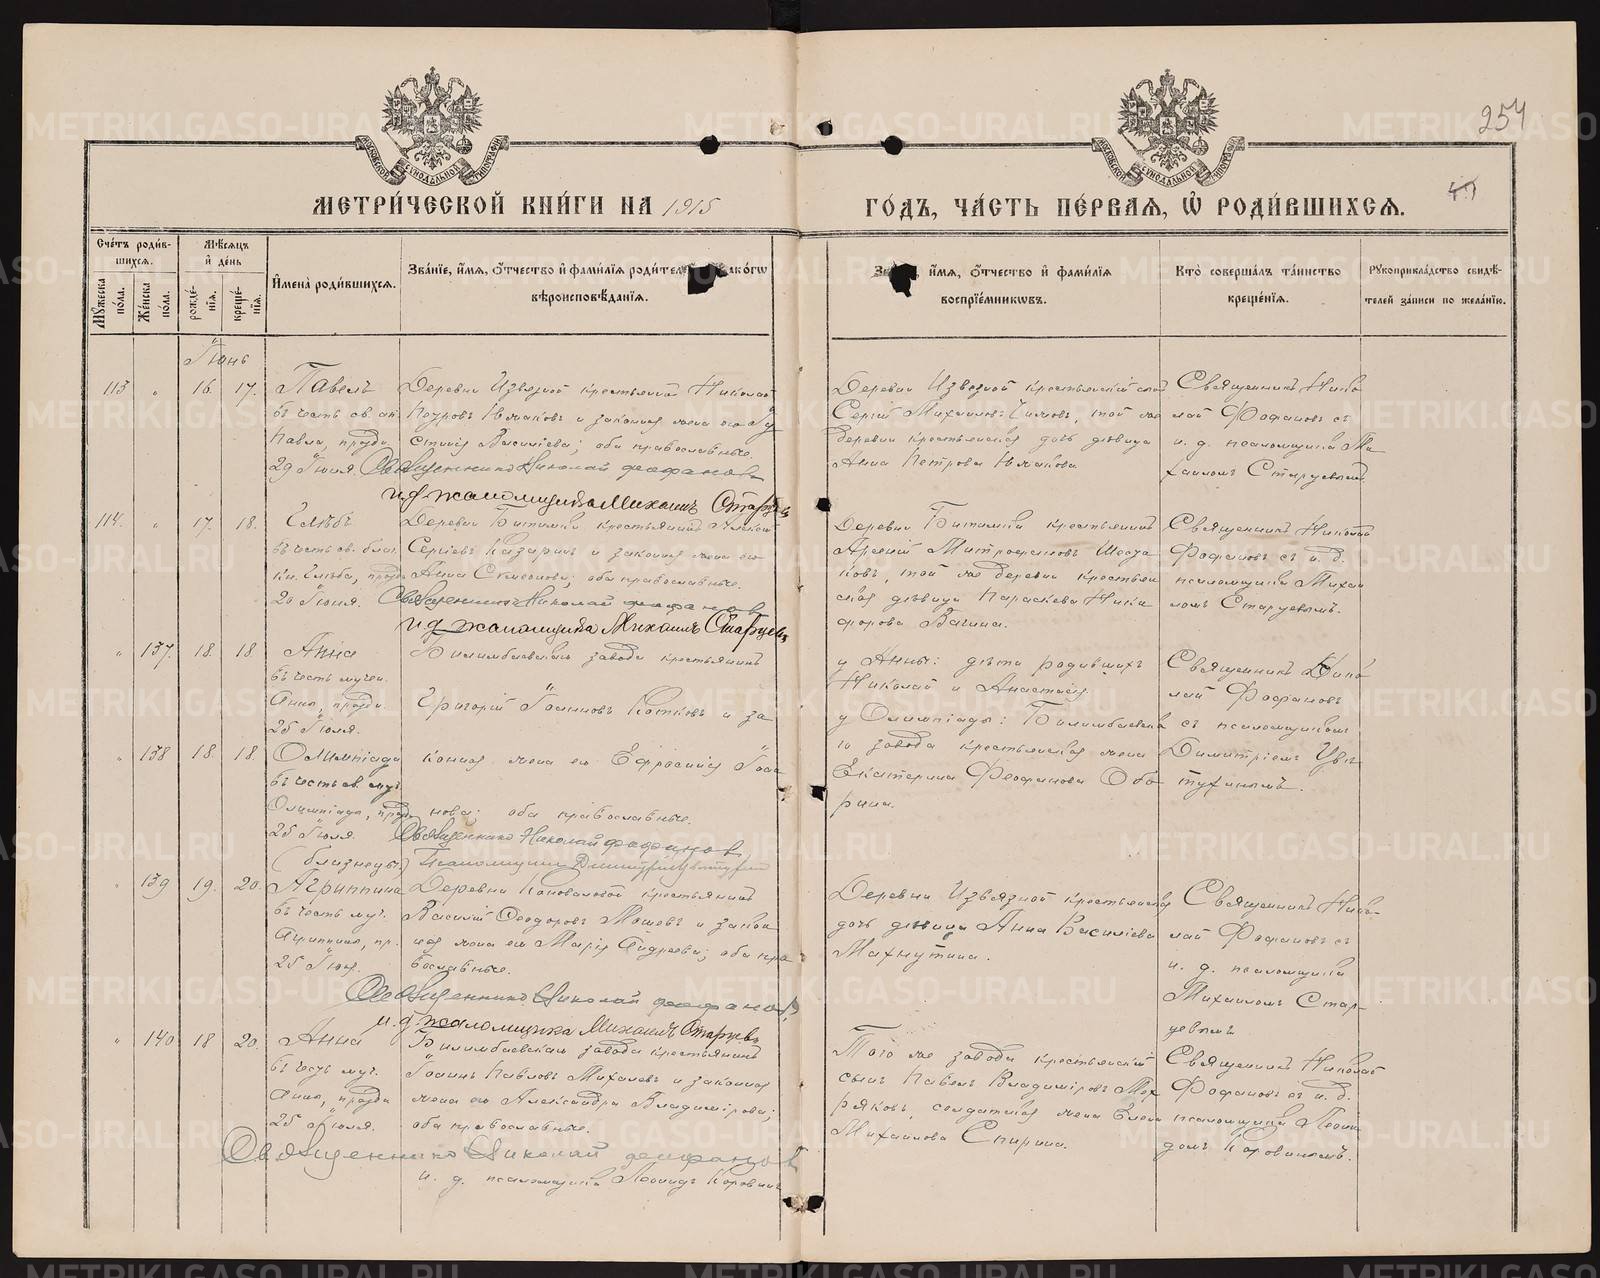 254
МЕТРИ́ЧЕСКОЙ КНИ́ГИ НА 1915
ГО́ДЪ, ЧА́СТЬ ПЕ́РВАЯ, Ѡ РОДИ́ВШИХСЯ.
Сче́тъ роди́в-
шихся.
Мѣ́сяцъ
и де́нь
Мꙋ́жеска по́ла.
Же́нска по́ла.
рожде́-
нїя.
креще́-
нїя.
Имена̀ роди́вшихся.
Зва́нїе, и́мя, о́тчество и фами́лїя роди́тел
како́гѡ
вѣроисповѣ́данїя.
и́мя, о́тчество и фами́лїя
воспрїе́мникѡвъ.
Кто̀ соверша́лъ та́инство
креще́нїя.
Рꙋкоприкла́дство свидѣ́-
телей за́писи по жела́нїю.
Іюнь
113 " 16. 17. Павелъ
въ честь св. ап.
Павла, праздн.
29 Іюля.
Деревни Извѣзной крестьянинъ Николай
Петровъ и законная жена его
Василіева; оба православные.
Священникъ Николай Феофановъ
и. д. псаломщика Михаилъ Старцевъ
Деревни Извѣзной крестьянскій сынъ
Сергій Михаиловъ той же
деревни крестьянская дочь дѣвица
Анна Петрова
Священникъ Нико-
лай Фофановъ съ
и. д. псаломщика Ми-
хаиломъ Старцевымъ.
114. " 17. 18. Глѣбъ
въ честь св. благ.
кн. Глѣба, праздн.
20 Іюня.
Деревни Битимки крестьянинъ Алексѣй
Сергіевъ Казаринъ и законная жена его
Анна Симеонова; оба православные.
Священникъ Николай Феофановъ
и. д. псаломщика Михаилъ Старцевъ
Деревни Битимки крестьянинъ
Арсеній Митрофановъ Шеста-
ковъ, той же деревни крестьян-
ская дѣвица Параскева Ники-
форова Вагина.
Священникъ Николай
Фофановъ съ и. д.
псаломщика Михаи-
ломъ Старцевымъ.
" 137. 18. 18 Анна
въ честь мучен.
Анны, праздн.
25 Іюля.
Билимбаевскаго завода крестьянинъ
Григорій Іоанновъ Котковъ и за-
у Анны: дѣти родившихъ
Николай и Анастасія
у Олимпіады: Билимбаевска-
го завода крестьянская жена
Екатерина Феофанова Обо-
рина.
Священникъ Нико-
лай Фофановъ
съ псаломщикомъ
Димитріемъ Цвѣ-
тухинымъ.
" 138 18. 18. Олимпіада
въ честь св. муч.
Олимпіады, праздн.
25 Іюля.
(близнецы)
конная жена его Ефросинія Іоан-
нова; оба православные.
Священникъ Николай Феофановъ
Псаломщикъ Димитрій Цвѣтухинъ
" 139 19. 20. Агриппина
въ честь муч.
Агриппины, пр.
25 Іюн.
Деревни Коноваловой крестьянинъ
Василій Ѳеодоровъ Мошевъ и закон-
ная жена его Марія Андреева; оба пра-
вославные.
Священникъ Николай Феофановъ
и. д. псаломщика Михаилъ Старцевъ
Деревни Извѣзной крестьянская
дочь дѣвица Анна Василіева
Махнутина.
Священникъ Нико-
лай Фофановъ съ
и. д. псаломщика
Михаиломъ Стар-
цевымъ
" 140 18 20. Анна
въ честь муч.
Анны, праздн.
25 Іюля.
Билимбаевскаго завода крестьянинъ
Іоаннъ Павловъ Михалевъ и законная
жена его Александра Владимірова;
оба православные.
Священникъ Николай Феофановъ
и. д. псаломщика Леонидъ Коровинъ
Того же завода крестьянскій
сынъ Павелъ Владиміровъ Мох-
ряковъ, солдатская жена Елена
Михаилова Спирина.
Священникъ Николай
Фофановъ съ и. д.
псаломщика Леони-
домъ Коровинымъ.
METRIKI.GASO-URAL.RU